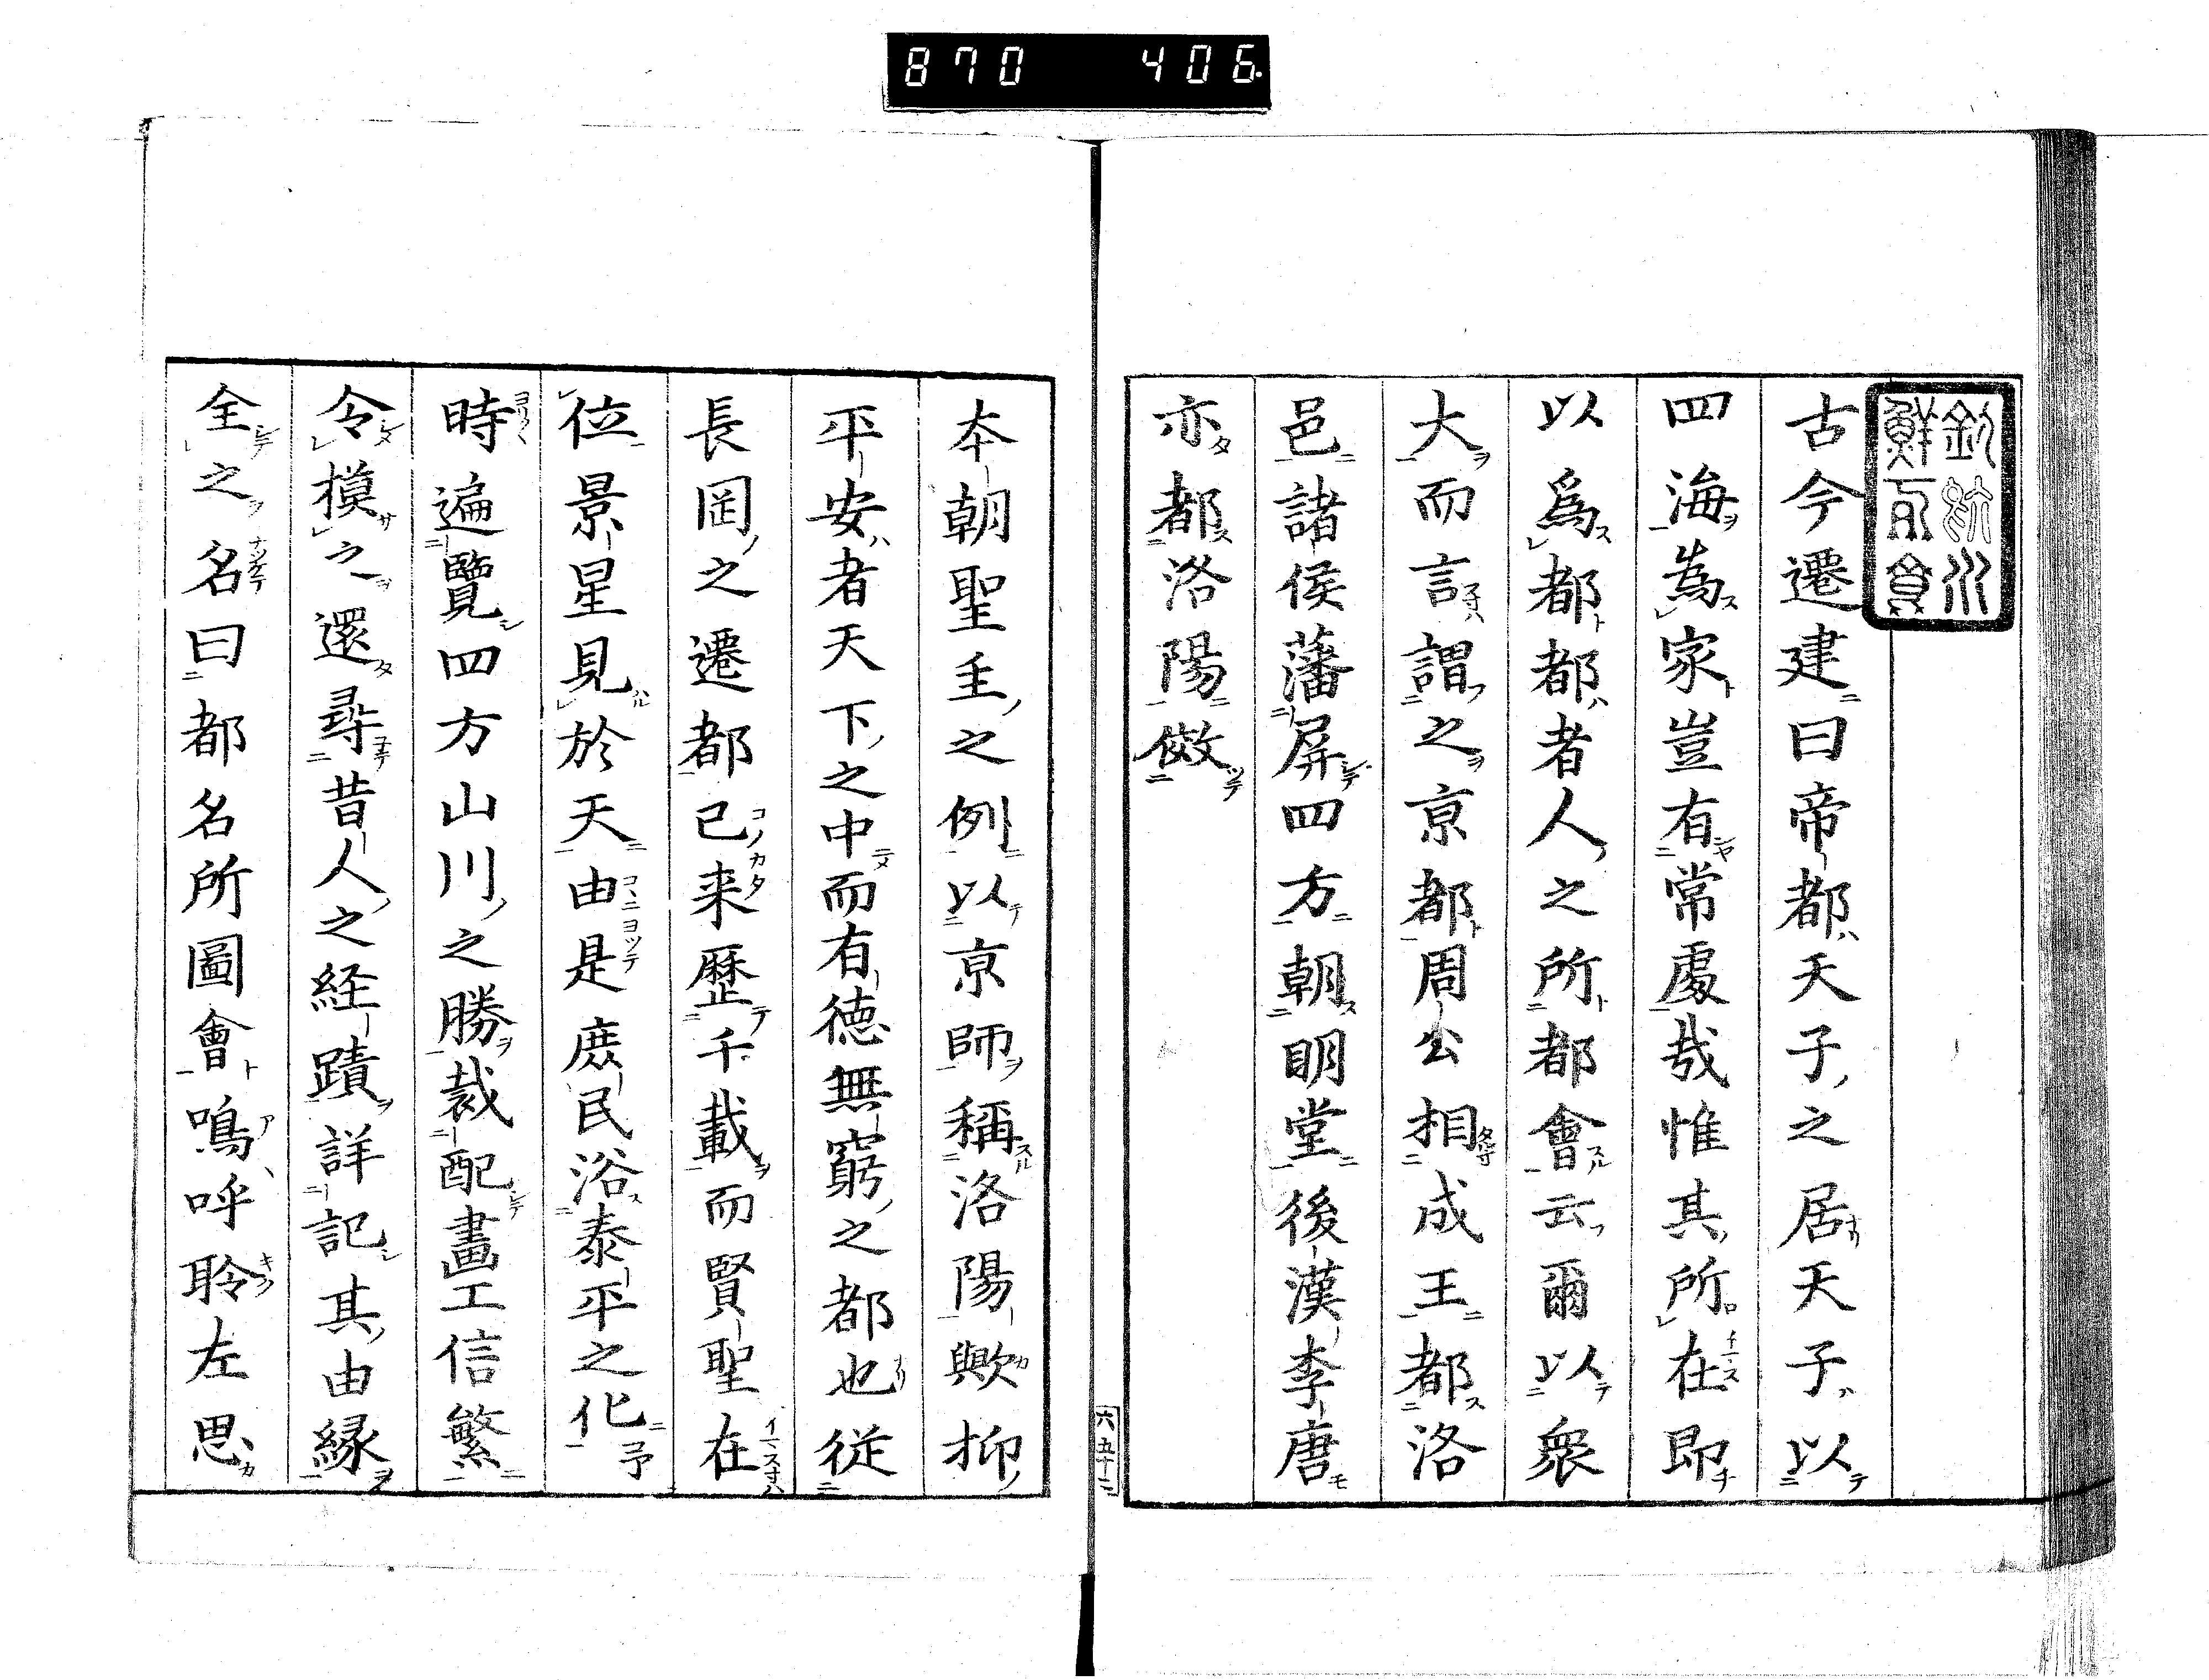 870 406
古今遷建曰帝都天子之居天子以
四海為家豈有常處哉惟其所在即
以為都都者人之所都會云爾以衆
大而言謂之京都周公相成王都洛
邑諸侯藩屏四方朝明堂後漢李唐
亦都洛陽倣
六五十二
本朝聖主之例以京師稱洛陽歟抑
平安者天下之中而有徳無窮之都也従
長岡之遷都已来歴千載而賢聖在
位景星見於天由是庶民浴泰平之化予
時遍覧四方山川之勝裁配畫工信繁
令模之還尋昔人之経蹟詳記其由縁
全之名曰都名所圖會嗚呼聆左思